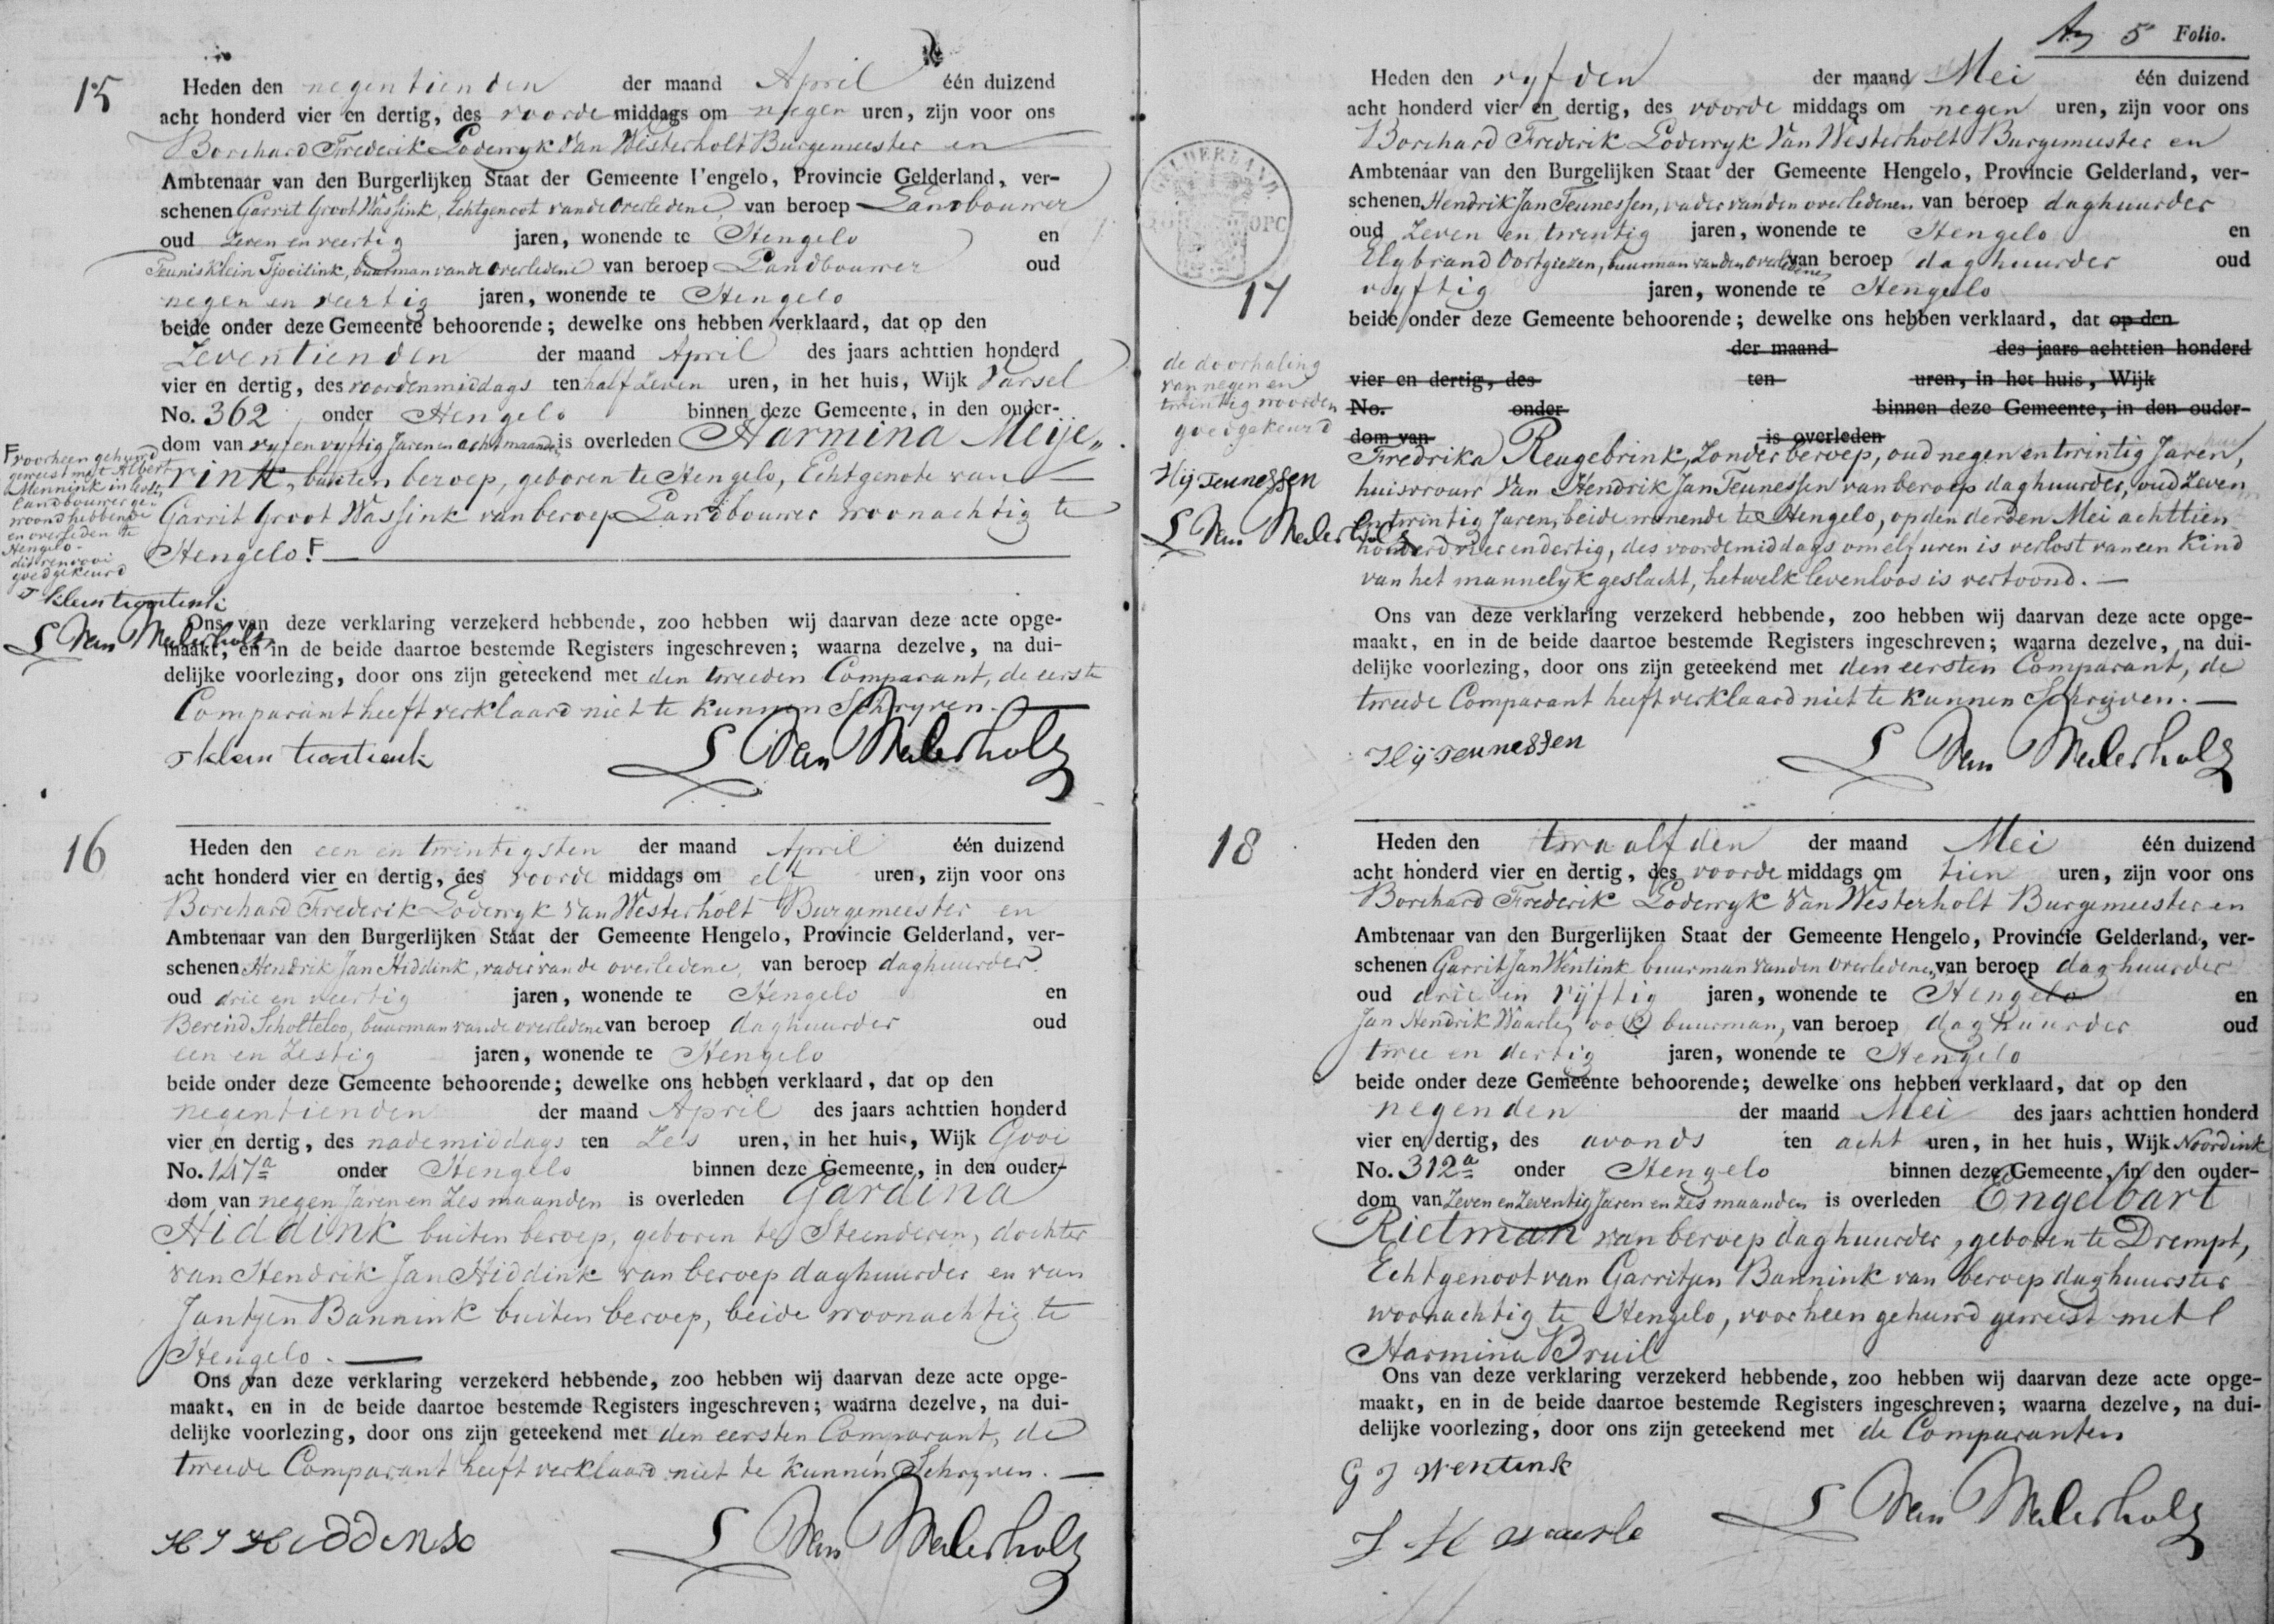 15
Heden den negentienden der maand April één duizend
acht honderd vier en dertig, des voorde middags om negen uren, zijn voor ons
Borchard Frederik Lodewyk Van Westerholt Burgemeester en
Ambtenaar van den Burgerlijken Staat der Gemeente l'engelo, Provincie Gelderland, ver-
schenen Garrit Groot Wassink, Echtgenoot van de overledene, van beroep Landbouwer
oud Zeven en veertig jaren, wonende te Hengelo en
Teunis klein Tjooitink, buurman van de overledene van beroep Landbouwer oud
negen en veertig jaren, wonende te Hengelo
beide onder deze Gemeente behoorende; dewelke ons hebben verklaard, dat op den
Zeventienden der maand April des jaars achttien honderd
vier en dertig, des voordenmiddags ten half Zeven uren, in het huis, Wijk Varsel
No. 362 onder Hengelo binnen deze Gemeente, in den ouder-
dom van vyf en vyftig Jaren en acht maanden is overleden Harmina Meije„
rink, buiten beroep, geboren te Hengelo, Echtgenote van
Garrit Groot Wassink van beroep Landbouwer woonachtig te
Hengelo. F
F voorheen gehuwd
geweest met Albert
Mennink in leven
Landbouwer ge-
woond hebbende
en overleden te
Hengelo -
dit renvooi
goedgekeurd
T klein tjooitink
L Van Westerholt
Ons van deze verklaring verzekerd hebbende, zoo hebben wij daarvan deze acte opge-
maakt, en in de beide daartoe bestemde Registers ingeschreven; waarna dezelve, na dui-
delijke voorlezing, door ons zijn geteekend met den tweeden Comparant, de eerste
Comparant heeft verklaard niet te kunnen Schryven.
T klein tjooitink
L Van Westerholt
16
Heden den een en twintigsten der maand April één duizend
acht honderd vier en dertig, des voorde middags om elf uren, zijn voor ons
Borchard Frederik Lodewyk Van Westerholt Burgemeester en
Ambtenaar van den Burgerlijken Staat der Gemeente Hengelo, Provincie Gelderland, ver-
schenen Hendrik Jan Hiddink, vader van de overledene, van beroep daghuurder
oud drie en veertig jaren, wonende te Hengelo en
Berend Scholteloo, buurman van de overledene van beroep daghuurder oud
een en Zestig jaren, wonende te Hengelo
beide onder deze Gemeente behoorende; dewelke ons hebben verklaard, dat op den
negentienden der maand April des jaars achttien honderd
vier en dertig, des nademiddags ten Zes uren, in het huis, Wijk Gooi
No. 147a onder Hengelo binnen deze Gemeente, in den ouder-
dom van negen Jaren en Zes maanden is overleden Gardina
Hiddink buiten beroep, geboren te Steenderen, dochter
van Hendrik Jan Hiddink van beroep daghuurder en van
Jantjen Bannink buiten beroep, beide woonachtig te
Hengelo.
Ons van deze verklaring verzekerd hebbende, zoo hebben wij daarvan deze acte opge-
maakt, en in de beide daartoe bestemde Registers ingeschreven; waarna dezelve, na dui-
delijke voorlezing, door ons zijn geteekend met den eersten Comparant, de
tweede Comparant heeft verklaard niet te kunnen Schryven.
H J Hiddink
L Van Westerholt
5 Folio.
GELDERLAND
17
Heden den vyfden der maand Mei één duizend
acht honderd vier en dertig, des voorde middags om negen uren, zijn voor ons
Borchard Frederik Lodewyk Van Westerholt Burgemeester en
Ambtenaar van den Burgelijken Staat der Gemeente Hengelo, Provincie Gelderland, ver-
schenen Hendrik Jan Teunessen, vader van den overledenen van beroep daghuurder
oud Zeven en twintig jaren, wonende te Hengelo en
Elybrand Oortgiezen, buurman van den overledenen van beroep daghuurder oud
vyftig jaren, wonende te Hengelo
beide onder deze Gemeente behoorende; dewelke ons hebben verklaard, dat op den
der maand des jaars achttien honderd
vier en dertig, des ten uren, in het huis, Wijk
No. onder binnen deze Gemeente, in den ouder-
dom van is overleden
de doorhaling
van negen en
twintig woorden
goedgekeurd
H J Teunessen
L Van Westerholt
Fredrika Reugebrink, Zonder beroep, oud negen en twintig Jaren,
huisvrouw Van Hendrik Jan Teunessen van beroep daghuurder, oud Zeven
en twintig Jaren, beide wonende te Hengelo, op den derden Mei achttien
honderd vier en dertig, des voordemiddags om elf uren is verlost van een Kind
van het mannelyk geslacht, hetwelk levenloos is vertoond.
Ons van deze verklaring verzekerd hebbende, zoo hebben wij daarvan deze acte opge-
maakt, en in de beide daartoe bestemde Registers ingeschreven; waarna dezelve, na dui-
delijke voorlezing, door ons zijn geteekend met den eersten Comparant, de
tweede Comparant heeft verklaard niet te kunnen Schryven.
H J Teunessen
L Van Westerholt
18
Heden den twaalfden der maand Mei één duizend
acht honderd vier en dertig, des voorde middags om tien uren, zijn voor ons
Borchard Frederik Lodewyk Van Westerholt Burgemeester en
Ambtenaar van den Burgerlijken Staat der Gemeente Hengelo, Provincie Gelderland, ver-
schenen Garrit Jan Wentink buurman van den overledene, van beroep daghuurder
oud drie en vijftig jaren, wonende te Hengelo en
Jan Hendrik Waarle, ook buurman, van beroep daghuurder oud
twee en dertig jaren, wonende te Hengelo
beide onder deze Gemeente behoorende; dewelke ons hebben verklaard, dat op den
negenden der maand Mei des jaars achttien honderd
vier en dertig, des avonds ten acht uren, in het huis, Wijk Noordink
No. 312a onder Hengelo binnen deze Gemeente, in den ouder-
dom van Zeven en Zeventig Jaren en Zes maanden is overleden Engelbart
Rietman van beroep daghuurder, geboren te Drempt,
Echtgenoot van Garritjen Bannink van beroep daghuurster
woonachtig te Hengelo, voorheen gehuwd geweest met
Harmina Bruil
Ons van deze verklaring verzekerd hebbende, zoo hebben wij daarvan deze acte opge-
maakt, en in de beide daartoe bestemde Registers ingeschreven; waarna dezelve, na dui-
delijke voorlezing, door ons zijn geteekend met de Comparanten
G J Wentink
J H Waarle
L Van Westerholt